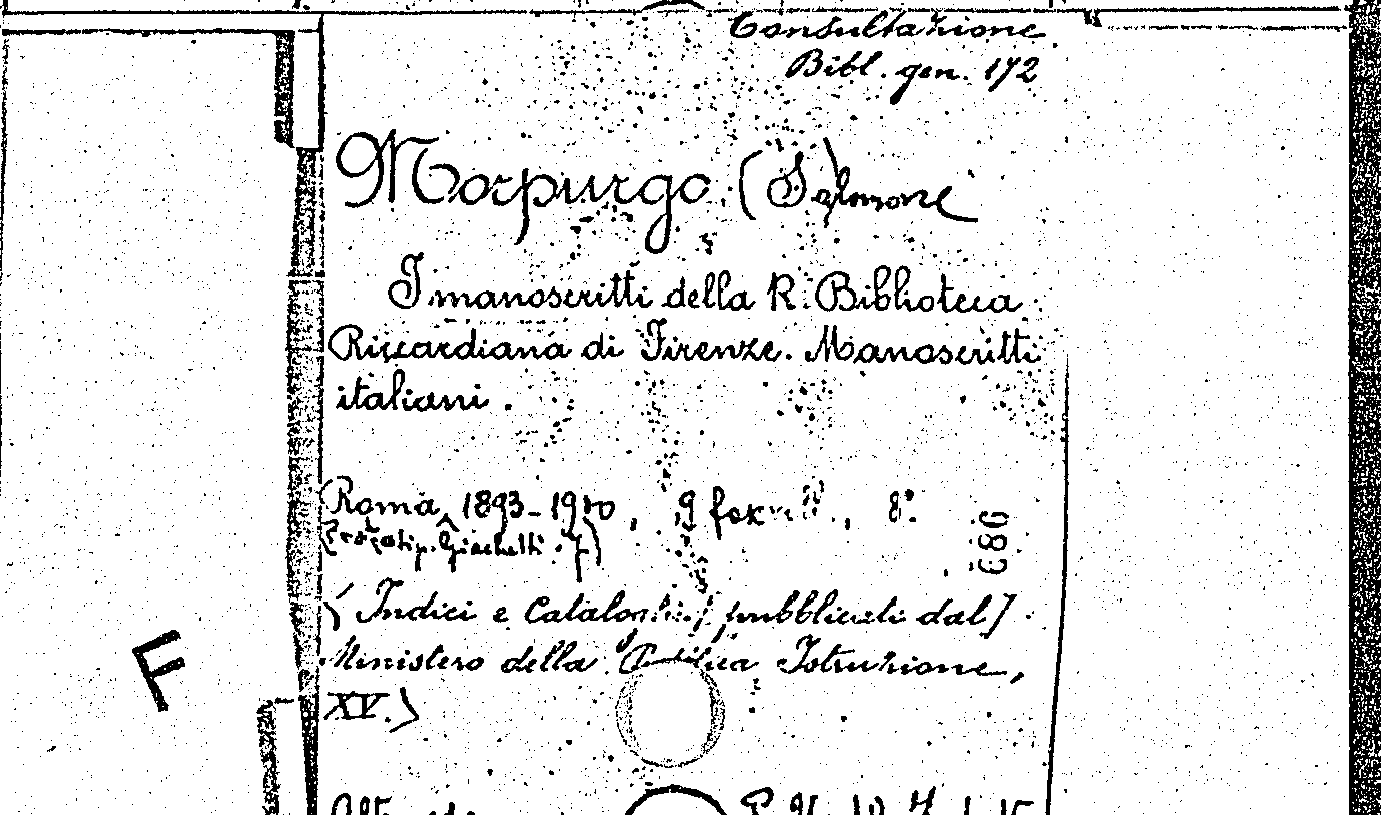 Consultazione
Bibl. gen. 172
Morpurgo (Salomone)
I manoscritti della R. Biblioteca
Riccardiana di Firenze. Manoscritti
italiani.
Roma, 1893-1910, 9 8°.
Giachetti
689
(Indici e Cataloghi [pubblicati dal]
Ministero della Pubblica Istruzione,
XV.)
F